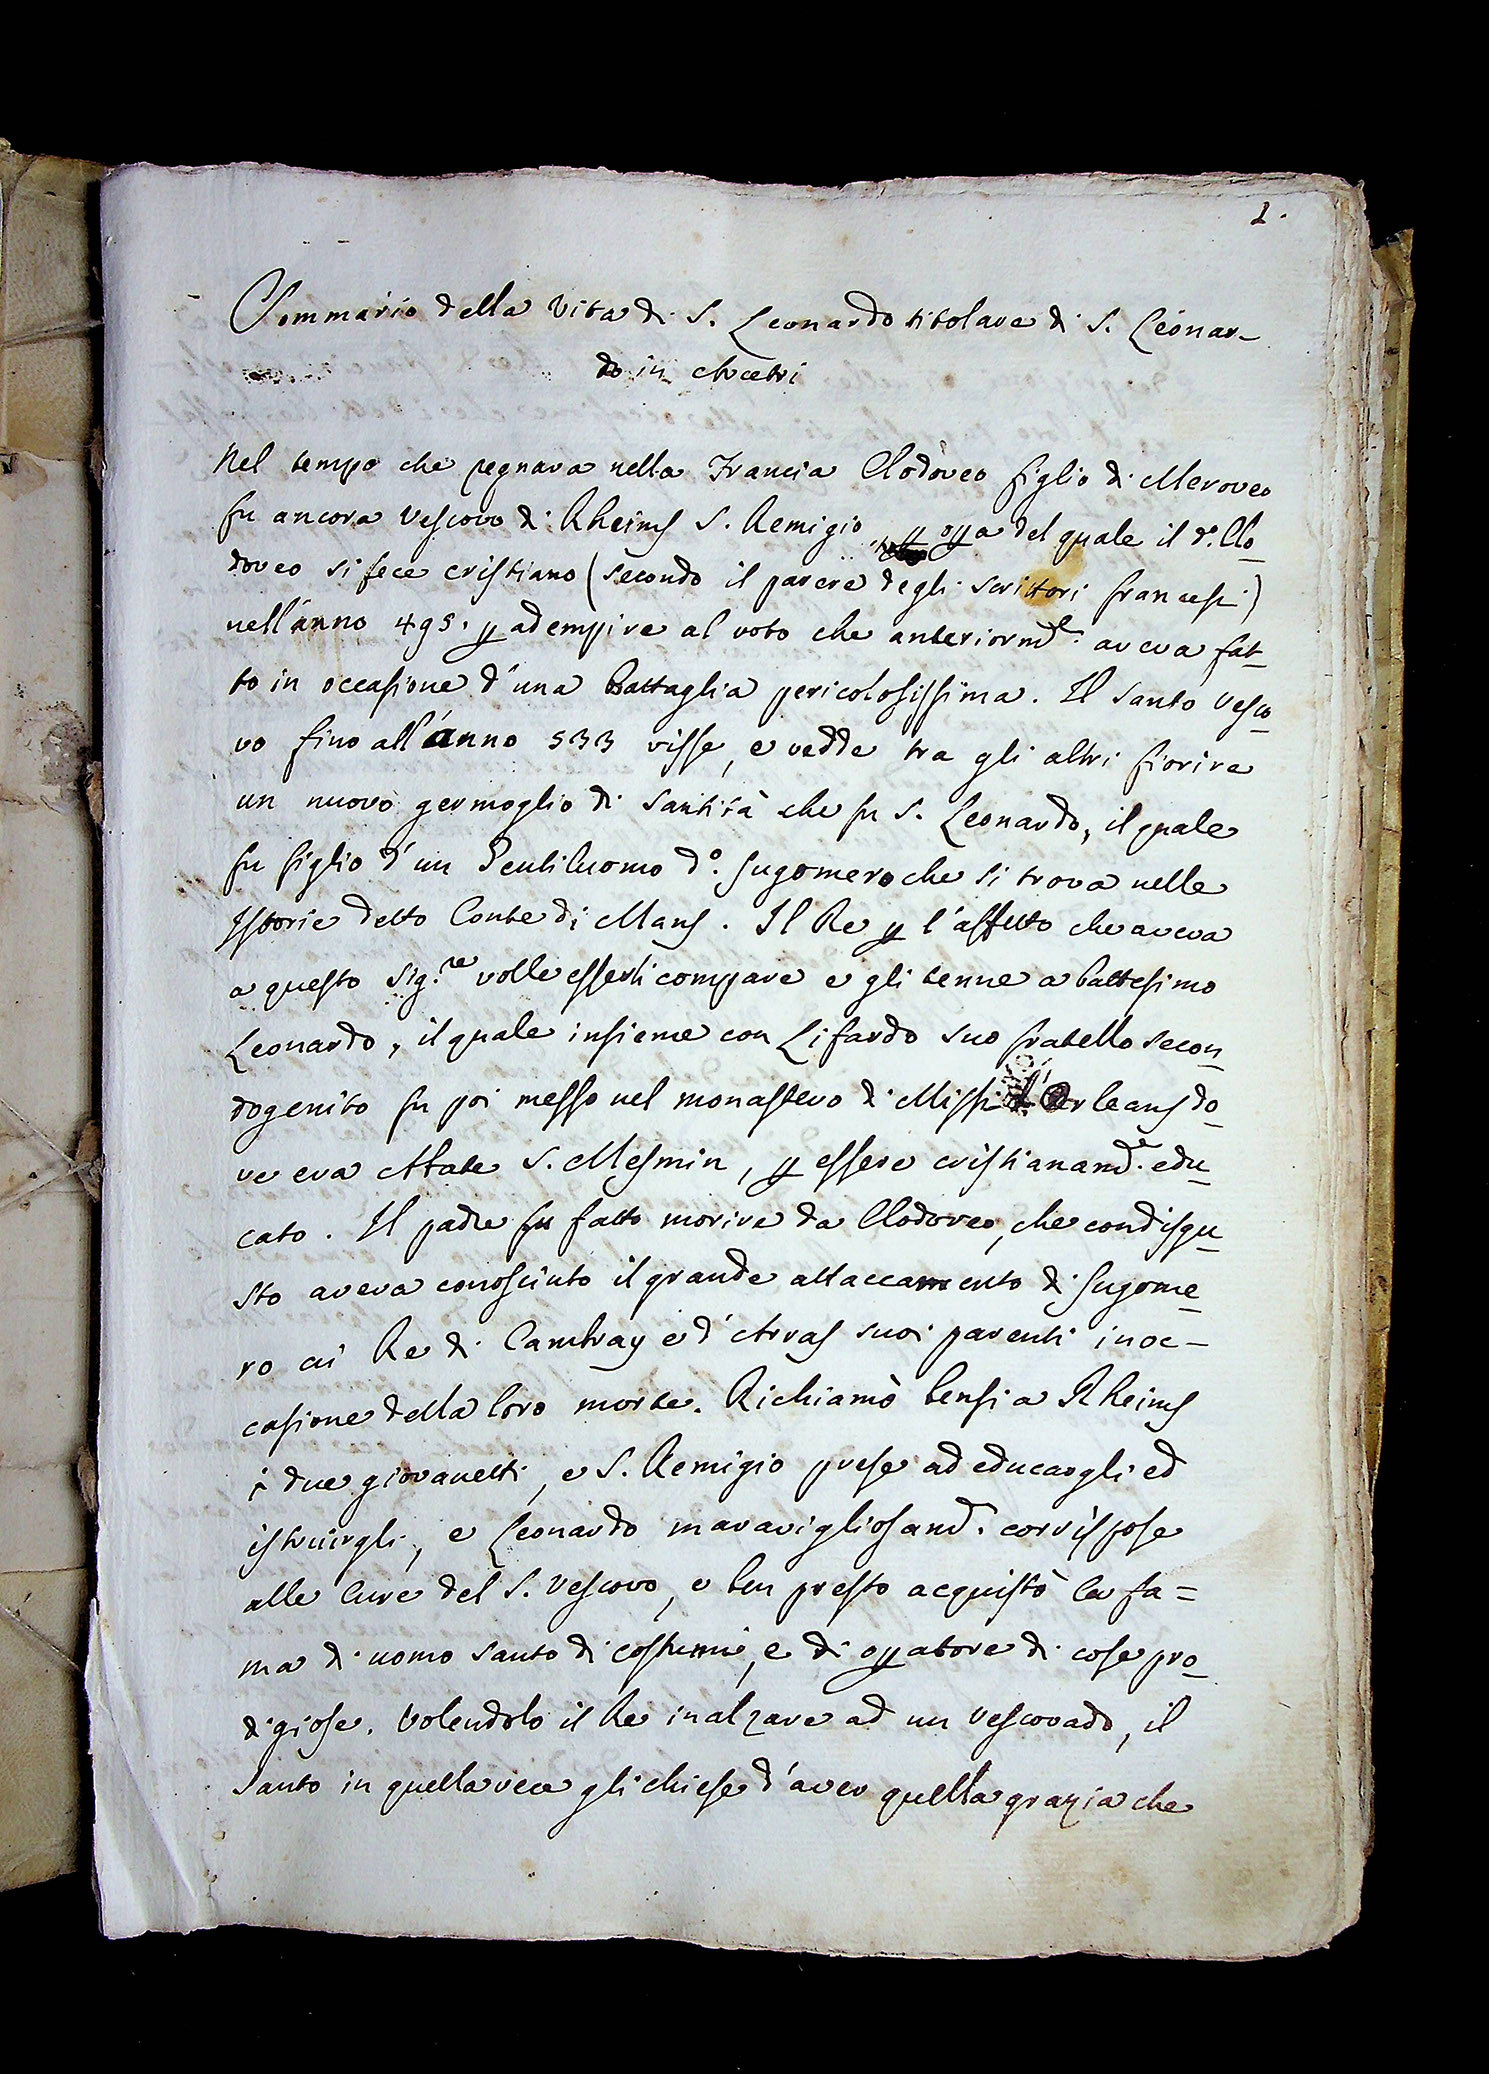 1.
Sommario della Vita di S. Leonardo titolare di S. Leonar-
do in Arcetri
Nel tempo che regnava nella Francia Clodoveo figlio di Meroveo
fu ancora Vescovo di Rheims S. Remigio, p opa del quale il dº. Clo-
doveo si fece cristiano (secondo il parere degli scrittori francesi)
nell'anno 495. p adempire al voto che anteriormte. aveva fat-
to in occasione d'una Battaglia pericolosissima. Il Santo Vesco-
vo fino all'anno 533 visse, e vedde tra gli altri fiorire
un nuovo germoglio di Santità che fu S. Leonardo, il quale
fu figlio d'un Gentiluomo dº. Jugomero che si trova nelle
Istorie detto Conte di Mans. Il Re p l'affetto che aveva
a questo Sig.re volle esserli compare e gli tenne a battesimo
Leonardo, il quale insieme con Lifardo suo fratello secon-
dogenito fu poi messo nel monastero di Missi d'Orleans do-
ve era Abate S. Mesmin, p essere cristianamte. edu-
cato. Il padre fu fatto morire da Clodoveo, che con disgu-
sto aveva conosciuto il grande attaccamento di Jugome-
ro ai Re di Cambray e d'Arras suoi parenti in oc-
casione della loro morte. Richiamò bensi a Rheims
i due giovanetti, e S. Remigio prese ad educargli ed
istruirgli, e Leonardo maravigliosamd. corrispose
alle Cure del S. Vescovo, e ben presto acquistò la fa=
ma di uomo Santo di costumi, e di opatore di cose pro-
digiose. Volendolo il Re inalzare ad un Vescovado, il
Santo in quella vece gli chiese d'aver quella grazia che